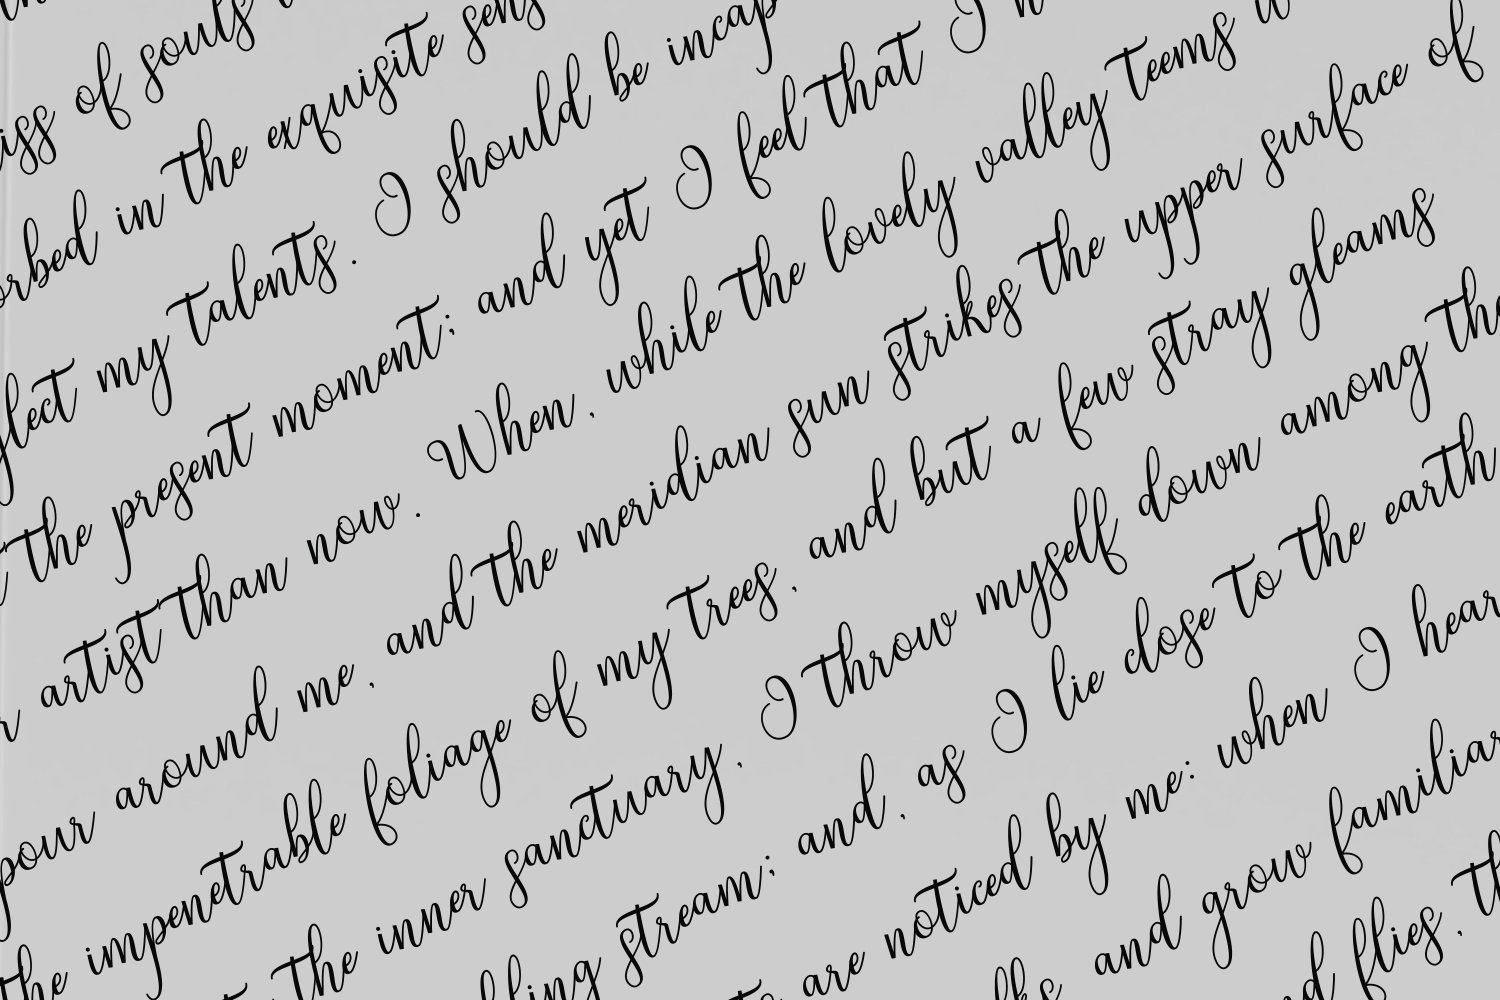 iss of souls
orbed in the exquisite sens
flect my talents. I should be incap
the present moment; and yet I feel that I n
r artist than now. When, while the lovely valley teems w
pour around me, and the meridian sun strikes the upper surface of
the impenetrable foliage of my trees, and but a few stray gleams
the inner sanctuary, I throw myself down among the
ling stream; and, as I lie close to the earth
are noticed by me: when I hear
lks and grow familiar
d flies, th